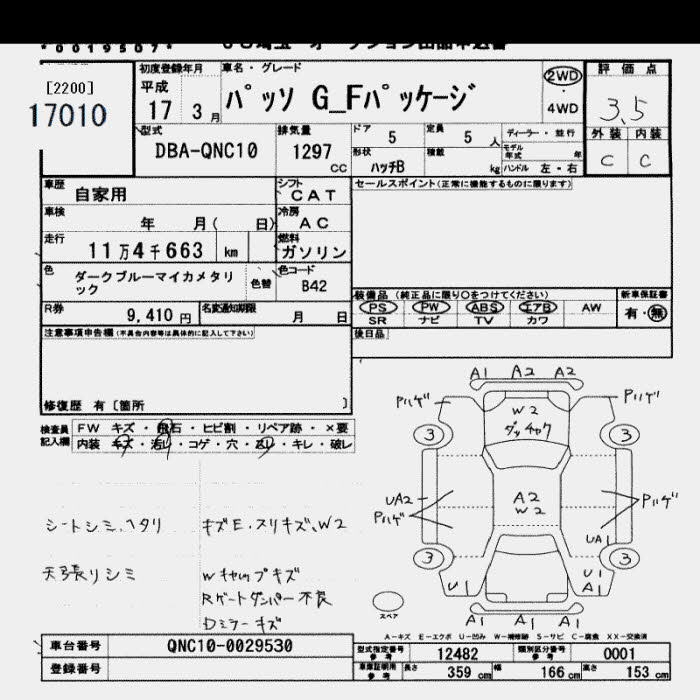 *0019507*
[2200]
17010
初度登録年月
平成
17 3月
車名・グレード
パッソ G_Fパッケージ
2WD
・
4WD
評価点
3.5
外装 内装
C C
型式
DBA-QNC10
排気量
1297
CC
ドア 5
定員 5 人
ディーラー・並行
形状 ハッチB
積載 kg
モデル年式 年
ハンドル 左・右
車歴
自家用
シフト
CAT
セールスポイント(正常に機能するものに限ります)
車検
年 月( 日)
冷房
AC
走行
11万4千663 km
燃料
ガソリン
色
ダークブルーマイカメタリック
色替
色コード
B42
装備品(純正品に限り○をつけてください)
PS PW ABS エアB AW
SR ナビ TV カワ
新車保証書
有・無
R券
9,410円
名変通知期限
月 日
後日品
注意事項申告欄(不具合内容等は具体的に記入して下さい)
修復歴 有〔箇所 〕
検査員記入欄
FW キズ・飛石・ヒビ割・リペア跡・×要
内装 キズ・汚レ・コゲ・穴・スレ・キレ・破レ
シートシミ、ヘタリ
キズE、スリキズ、W2
天張リシミ
Wキャップキズ
Rゲートダンパー不良
Dミラーキズ
A1 A2 A2
Pハゲ
Pハゲ
W2
ダッチャク
3
3
UA2
Pハゲ
A2
W2
Pハゲ
UA1
3
3
U1
U1
A1
スペア
A1 A1 A1
A-キズ E-エクボ U-凹み W-補修跡 S-サビ C-腐食 XX-交換済
車台番号
QNC10-0029530
登録番号
型式指定番号 参考
12482
類別区分番号 参考
0001
車庫証明用 参考
長さ 359 cm
幅 166 cm
高さ 153 cm